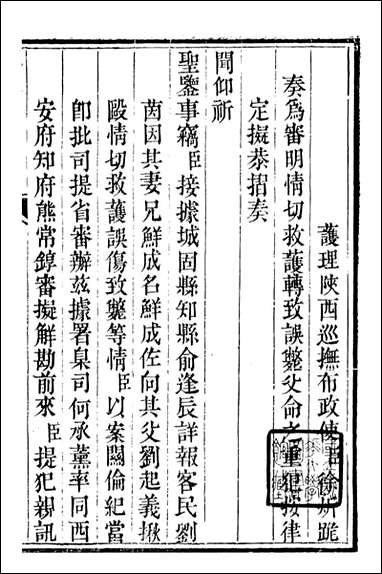 護理陝西巡撫布政使臣徐炘跪
奏爲審明情切救護轉致誤斃父命之重犯按律
定擬恭摺奏
聞仰祈
聖鑒事竊臣接據城固縣知縣俞逢辰詳報客民劉
茵因其妻兄鮮成名鮮成佐向其父劉起義揪
毆情切救護誤傷致斃等情臣以案關倫紀當
卽批司提省審辦茲據署臬司何承薰率同西
安府知府熊常錞審擬解勘前來臣提犯親訊